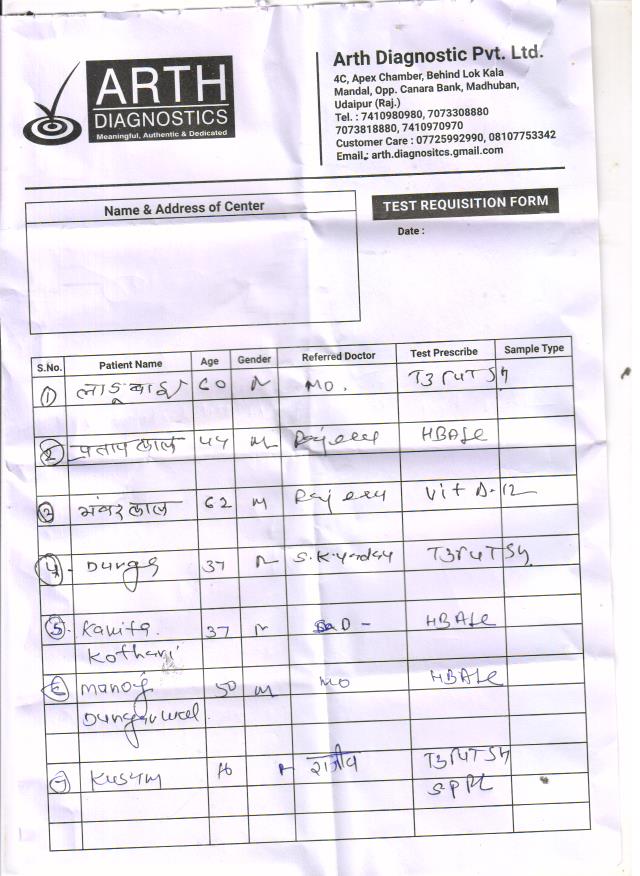 ARTH
DIAGNOSTICS
Meaningful, Authentic & Dedicated
Arth Diagnostic Pvt. Ltd.
4C, Apex Chamber, Behind Lok Kala
Mandal, Opp. Canara Bank, Madhuban,
Udaipur (Raj.)
Tel. : 7410980980, 7073308880
7073818880, 7410970970
Customer Care : 07725992990, 08107753342
Email: arth.diagnositcs.gmail.com
Name & Address of Center
TEST REQUISITION FORM
Date :
S.No. Patient Name Age Gender Referred Doctor Test Prescribe Sample Type
1 60 MO. T3T4TSH
2 प्रताप लाल 44 M HBA1c
3 भंवर लाल 62 M Vit D-12
4. Durga 37 S.K. Yadav T3T4TSH
5. Kavita 37 HBA1c
Kothari
6 Manoj 50 M MO HBA1c
7 Kusum राजीव T3T4TSH